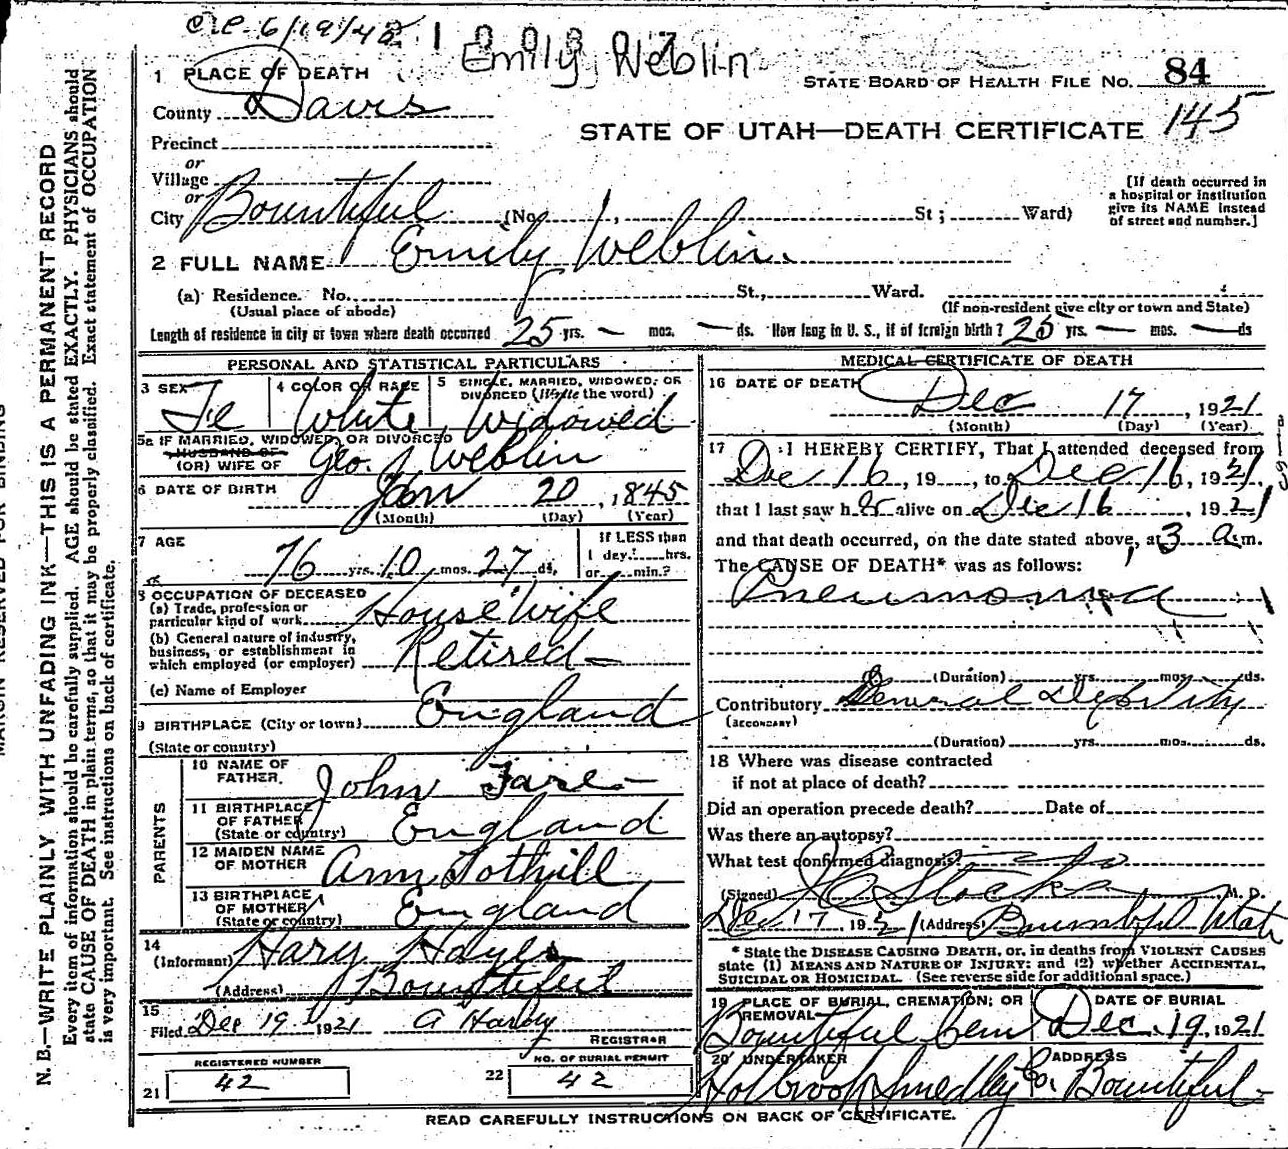 C.C. 6/19/42
Emily Weblin
1 PLACE OF DEATH
STATE BOARD OF HEALTH FILE NO. 84
County Davis
145
STATE OF UTAH—DEATH CERTIFICATE
Precinct
or
Village
or
City Bountiful (No. , St; Ward)
[If death occurred in
a hospital or institution
give its NAME instead
of street and number.]
2 FULL NAME Emily Weblin
(a) Residence. No. St., Ward.
(Usual place of abode) (If non-resident give city or town and State)
Length of residence in city or town where death occurred 25 yrs. — mos. — ds. How long in U. S., if of foreign birth? 25 yrs. — mos. — ds
PERSONAL AND STATISTICAL PARTICULARS
3 SEX Fe
4 COLOR OR RACE White
5 SINGLE, MARRIED, WIDOWED, OR
DIVORCED (Write the word)
Widowed
5a IF MARRIED, WIDOWED, OR DIVORCED
HUSBAND OF
(OR) WIFE OF Geo. Weblin
6 DATE OF BIRTH Jan 20, 1845
(Month) (Day) (Year)
7 AGE 76 yrs. 10 mos. 27 ds.
If LESS than
1 day, hrs.
or min.?
8 OCCUPATION OF DECEASED
(a) Trade, profession or
particular kind of work House Wife
(b) General nature of industry,
business, or establishment in
which employed (or employer) Retired
(c) Name of Employer
9 BIRTHPLACE (City or town) England
(State or country)
PARENTS
10 NAME OF
FATHER John
11 BIRTHPLACE
OF FATHER
(State or country) England
12 MAIDEN NAME
OF MOTHER Ann Tothill
13 BIRTHPLACE
OF MOTHER
(State or country) England
14
(Informant) Hary
(Address) Bountiful
15
Filed Dec 19 1921 A Hardy
REGISTRAR
REGISTERED NUMBER
21 42
NO. OF BURIAL PERMIT
22 42
MEDICAL CERTIFICATE OF DEATH
16 DATE OF DEATH
Dec 17, 1921
(Month) (Day) (Year)
17 I HEREBY CERTIFY, That I attended deceased from
Dec 16, 19 , to Dec 16, 1921,
that I last saw her alive on Dec 16, 1921
and that death occurred, on the date stated above, at 3 a.m.
The CAUSE OF DEATH* was as follows:
Pneumonia
(Duration) yrs. mos. ds.
Contributory General Debility
(SECONDARY)
(Duration) yrs. mos. ds.
18 Where was disease contracted
if not at place of death?
Did an operation precede death? Date of
Was there an autopsy?
What test confirmed diagnosis?
(Signed) Stocks M. D.
Dec 17, 1921 (Address) Bountiful Utah
* State the DISEASE CAUSING DEATH, or, in deaths from VIOLENT CAUSES
state (1) MEANS AND NATURE OF INJURY; and (2) whether ACCIDENTAL,
SUICIDAL OR HOMICIDAL. (See reverse side for additional space.)
19 PLACE OF BURIAL, CREMATION, OR
REMOVAL
Bountiful Cem
DATE OF BURIAL
Dec. 19, 1921
20 UNDERTAKER
Holbrook Smedley Co.
ADDRESS
Bountiful
READ CAREFULLY INSTRUCTIONS ON BACK OF CERTIFICATE.
MARGIN RESERVED FOR BINDING
N. B.—WRITE PLAINLY WITH UNFADING INK—THIS IS A PERMANENT RECORD
Every item of information should be carefully supplied. AGE should be stated EXACTLY. PHYSICIANS should
state CAUSE OF DEATH in plain terms, so that it may be properly classified. Exact statement of OCCUPATION
is very important. See instructions on back of certificate.